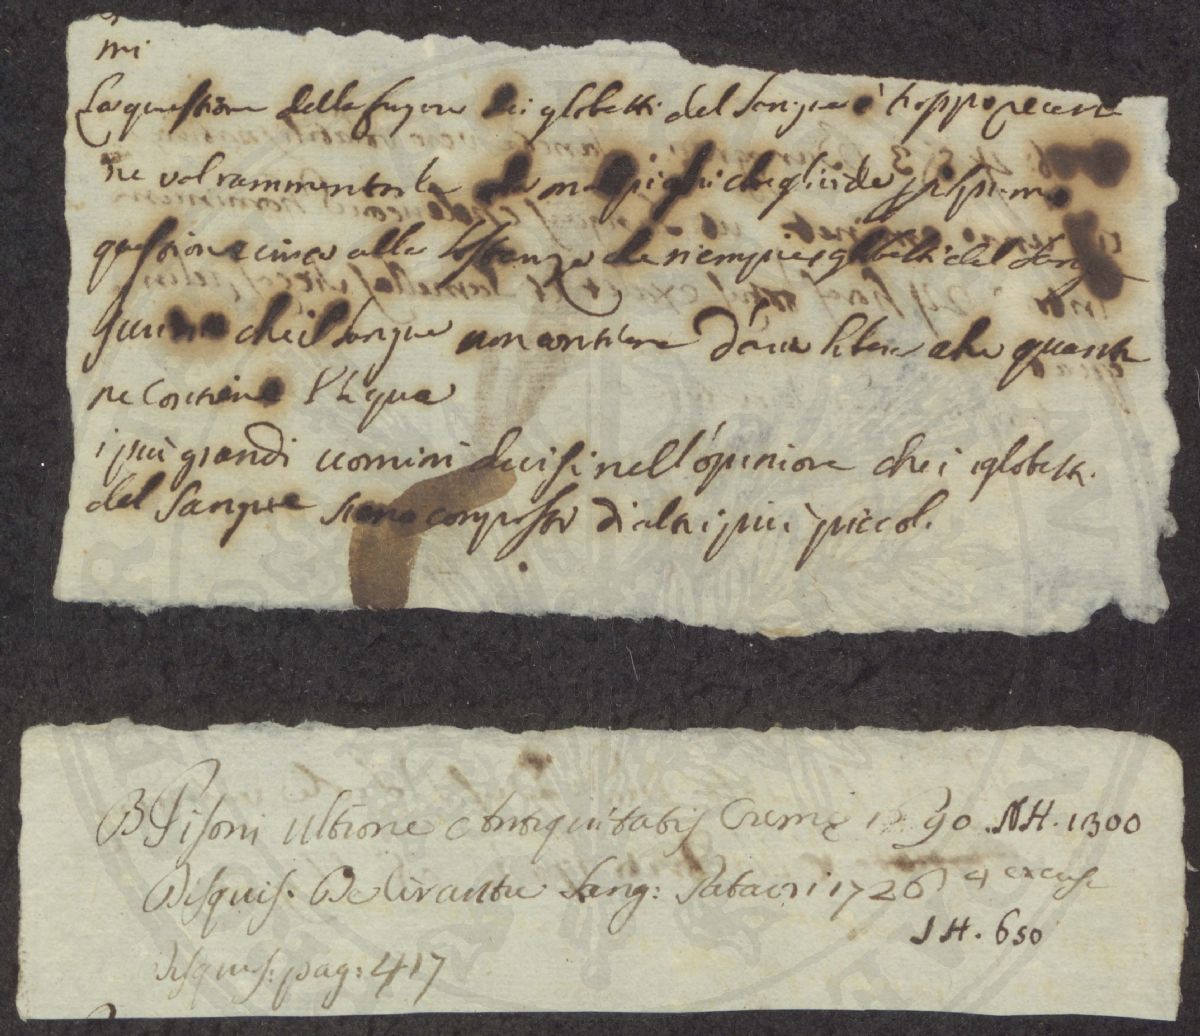 mi
La questione della figura dei globetti del Sangue è troppo recente
ne val rammentarla
questione circa alla sostanza che riempie i globetti del Sangue
che il Sangue non contiene d'aria libera che quanta
ne contiene l'Aqua
i più grandi uomini decisi nell'opinione che i globetti
del Sangue siano composti di altri più piccoli.
B Pisoni Ultione Antiquitatis Cremę 1690. NH. 1300
Disquis. De Circuitu Sang: Patavi 1726
JH. 650
Disquis: pag: 417